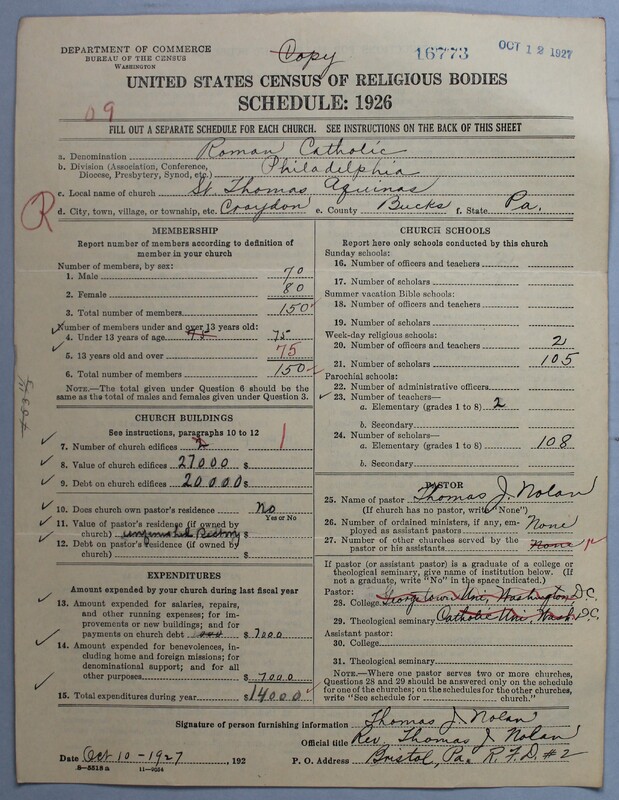 DEPARTMENT OF COMMERCE
BUREAU OF THE CENSUS
WASHINGTON
Copy
16773
OCT 12 1927
UNITED STATES CENSUS OF RELIGIOUS BODIES
SCHEDULE: 1926
09
FILL OUT A SEPARATE SCHEDULE FOR EACH CHURCH. SEE INSTRUCTIONS ON THE BACK OF THIS SHEET
a. Denomination Roman Catholic
b. Division (Association, Conference, Diocese, Presbytery, Synod, etc.) Philadelphia
c. Local name of church St. Thomas Aquinas
R
d. City, town, village, or township, etc. Croydon e. County Bucks f. State Pa.
MEMBERSHIP
Report number of members according to definition of
member in your church
Number of members, by sex:
1. Male 70
2. Female 80
3. Total number of members 150
Number of members under and over 13 years old:
4. Under 13 years of age 75 75
5. 13 years old and over 75
6. Total number of members 150
NOTE.—The total given under Question 6 should be
same as the total of males and females given under Question 3.
CHURCH BUILDINGS
See instructions, paragraphs 10 to 12
7. Number of church edifices 2 1
8. Value of church edifices 27000 $
9. Debt on church edifices 20000 $
10. Does church own pastor's residence No
Yes or No
11. Value of pastor's residence (if owned by
church) unfinished Rectory $
12. Debt on pastor's residence (if owned by
church) $
EXPENDITURES
Amount expended by your church during last fiscal year
13. Amount expended for salaries, repairs,
and other running expenses; for im-
provements or new buildings; and for
payments on church debt $ 7000
14. Amount expended for benevolences, in-
cluding home and foreign missions; for
denominational support; and for all
other purposes $ 7000
15. Total expenditures during year $ 14000
CHURCH SCHOOLS
Report here only schools conducted by this church
Sunday schools:
16. Number of officers and teachers
17. Number of scholars
Summer vacation Bible schools:
18. Number of officers and teachers
19. Number of scholars
Week-day religious schools:
20. Number of officers and teachers 2
21. Number of scholars 105
Parochial schools:
22. Number of administrative officers
23. Number of teachers—
a. Elementary (grades 1 to 8) 2
b. Secondary
24. Number of scholars—
a. Elementary (grades 1 to 8) 108
b. Secondary
PASTOR
25. Name of pastor Thomas J. Nolan
(If church has no pastor, write "None")
26. Number of ordained ministers, if any, em-
ployed as assistant pastors None
27. Number of other churches served by the
pastor or his assistants None
If pastor (or assistant pastor) is a graduate of a college or
theological seminary, give name of institution below. (If
not a graduate, write "No" in the space indicated.)
Pastor:
28. College Georgetown Uni, Washington D.C.
29. Theological seminary Catholic Uni Wash D.C.
Assistant pastor:
30. College
31. Theological seminary
NOTE.—Where one pastor serves two or more churches,
Questions 28 and 29 should be answered only on the schedule
for one of the churches; on the schedules for the other churches,
write "See schedule for church."
Signature of person furnishing information Thomas J. Nolan
Official title Rev. Thomas J Nolan
Date Oct 10-1927, 192 P. O. Address Bristol, Pa. R.F.D. #2
8-5518a 11-9024